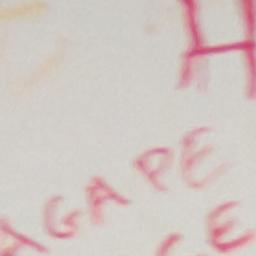 H
AGAPE
E